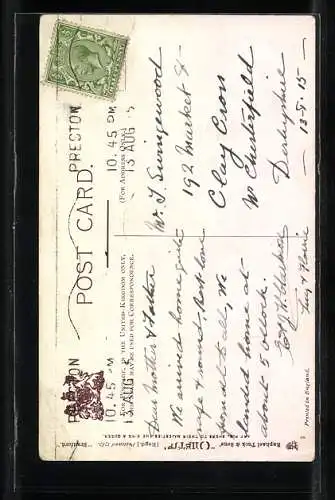 POST CARD.
PRESTON
10.45 PM
13 AUG
PRESTON
10.45 PM
13 AUG
FOR POSTAGE IN THE UNITED KINGDOM ONLY,
MAY BE USED FOR CORRESPONDENCE.
(FOR ADDRESS ONLY.)
Raphael Tuck & Sons' "OILETTE" [Regd.]
ART PUBLISHERS TO THEIR MAJESTIES THE KING & QUEEN.
Dear Mother & Father
We arrived home quite
safe & sound. Best love
to all. We
landed home at
about 5 oclock.
Mr. J. Swingewood
192 Market St
Clay Cross
Nr Chesterfield
Derbyshire
13-8-15-
Printed in England.